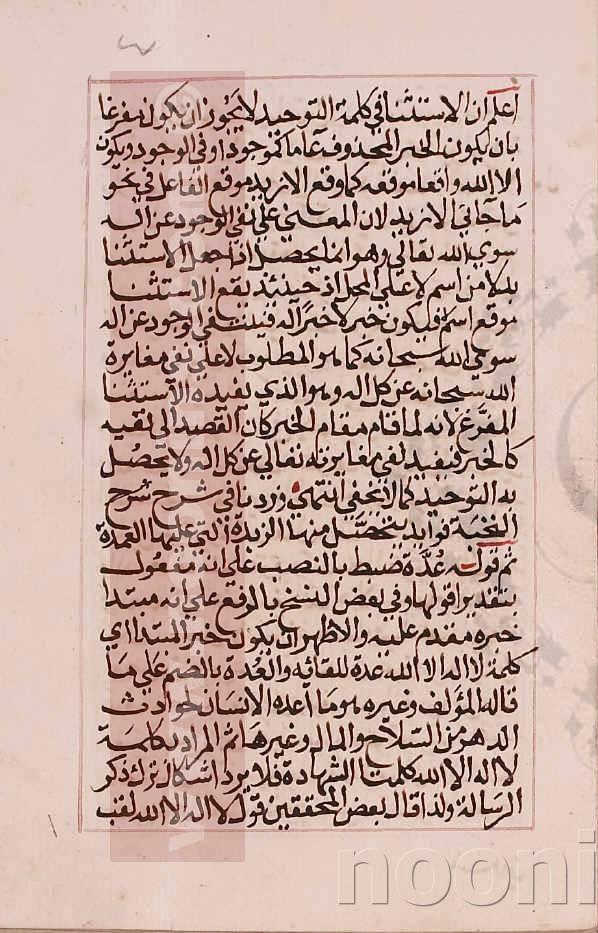 اعلم ان الاستثنا في كلمة التوحيد لا يجوز ان يكون مفرغا
بان يكون الخبر المحذوف عاما كموجود او في الوجود ويكون
الا الله واقعا موقعه كما وقع الا زيد موقع الفاعل في نحو
ما جاني الا زيد لان المعنى على نفي الوجود عن اله
سوي الله تعالى وهو انما يحصل اذا جعل الاستثنا
بدلا من اسم لا على المحل اذ حينئذ يقع الاستثنا
موقع اسم فيكون خبر لا خبرا له فينتفي الوجود عن اله
سوي الله سبحانه كما هو المطلوب لا على نفي مغايرة
الله سبحانه عن كل اله وهو الذي يفيده الاستثنا
المفرغ لانه لما قام مقام الخبر كان القصد الى نفيه
كالخبر فيفيد نفي مغايرته تعالى عن كل اله ولا يحصل
به التوحيد كما لا يخفى انتهى وزدنا في شرح شرح
النخبة فوايد يتحصل منها الزبدة التي عليها العمدة
ثم قوله عدة ضبط بالنصب على انه مفعول
بتقدير اقولها وفي بعض النسخ بالرفع على انه مبتدا
خبره مقدم عليه والاظهر ان يكون خبر المبتدا اي
كلمة لا اله الا الله عدة للقائه والعدة بالضم على ما
قاله المؤلف وغيره هو ما اعده الانسان لحوادث
الدهر من السلاح والمال وغيرها ثم المراد بكلمة
لا اله الا الله كلمتا الشهادة فلا يرد اشكال ترك ذكر
الرسالة ولذا قال بعض المحققين قول لا اله الا الله لقب
nooni